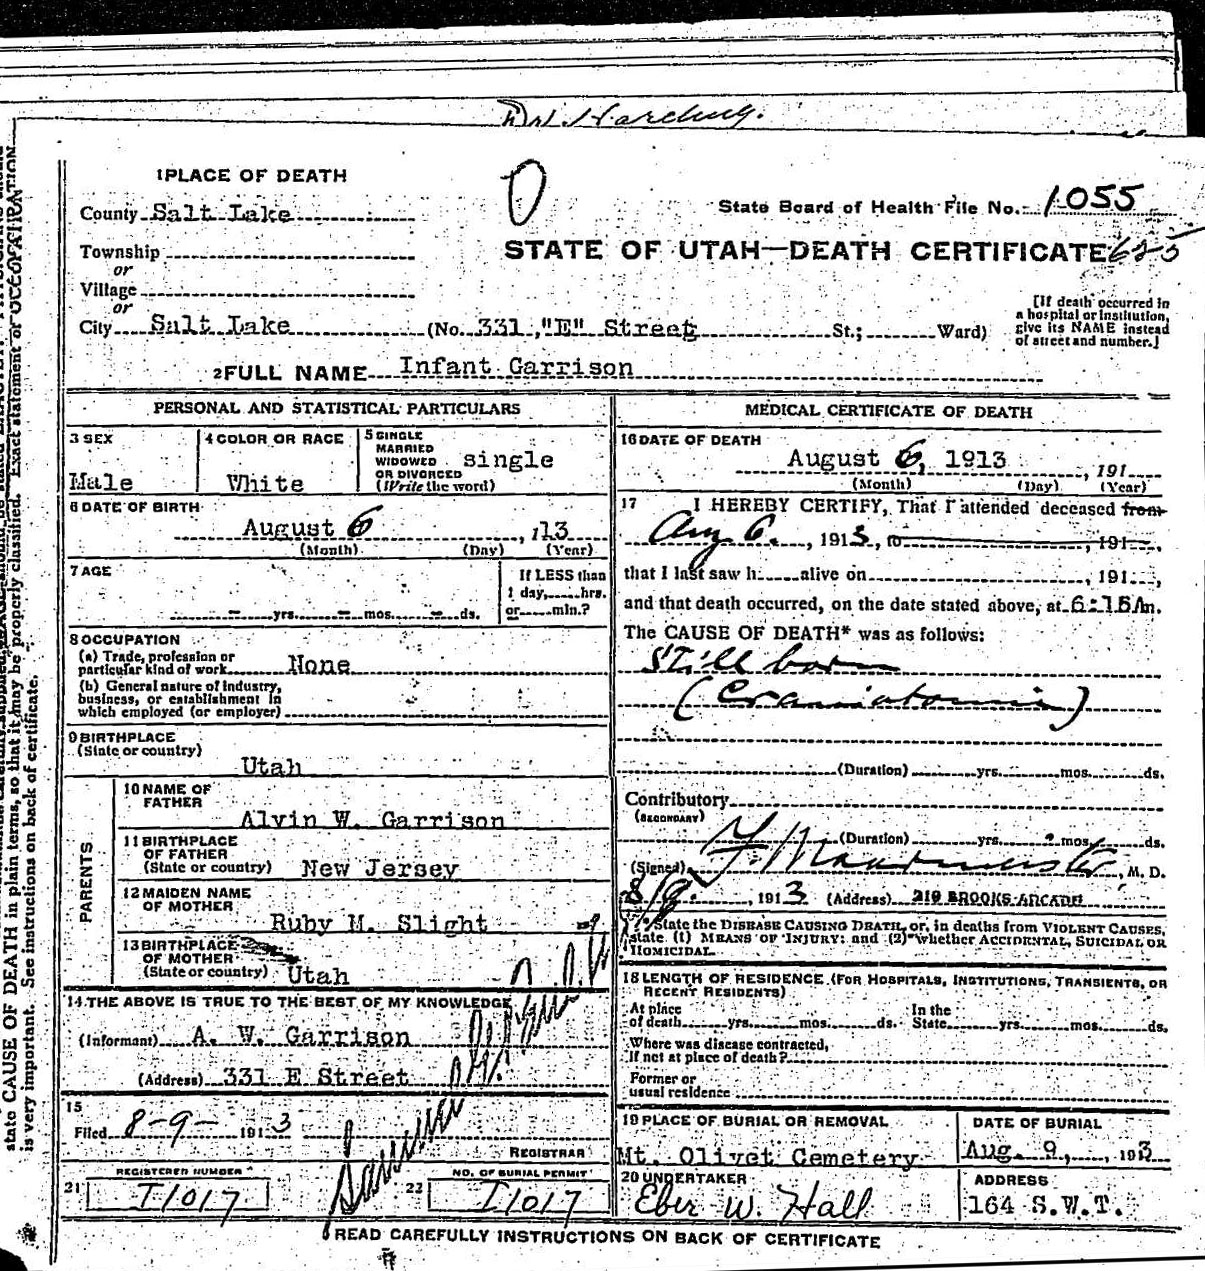 1 PLACE OF DEATH
County Salt Lake
State Board of Health File No. 1055
Township
or
STATE OF UTAH—DEATH CERTIFICATE
Village
or
City Salt Lake (No. 331, "E" Street St.; Ward)
[If death occurred in
a hospital or institution,
give its NAME instead
of street and number.]
2 FULL NAME Infant Garrison
PERSONAL AND STATISTICAL PARTICULARS
3 SEX
Male
4 COLOR OR RACE
White
5 SINGLE
MARRIED
WIDOWED
OR DIVORCED
(Write the word)
single
6 DATE OF BIRTH
August 6, 113
(Month) (Day) (Year)
7 AGE
- yrs. - mos. - ds.
If LESS than
1 day, hrs.
or min.?
8 OCCUPATION
(a) Trade, profession or
particular kind of work None
(b) General nature of industry,
business, or establishment in
which employed (or employer)
9 BIRTHPLACE
(State or country)
Utah
PARENTS
10 NAME OF
FATHER
Alvin W. Garrison
11 BIRTHPLACE
OF FATHER
(State or country) New Jersey
12 MAIDEN NAME
OF MOTHER
Ruby M. Slight
13 BIRTHPLACE
OF MOTHER
(State or country) Utah
14 THE ABOVE IS TRUE TO THE BEST OF MY KNOWLEDGE
(Informant) A. W. Garrison
(Address) 331 E Street
15
Filed 8-9- 1913
REGISTRAR
REGISTERED NUMBER
21 I1017
NO. OF BURIAL PERMIT
22 I1017
MEDICAL CERTIFICATE OF DEATH
16 DATE OF DEATH
August 6, 1913, 191
(Month) (Day) (Year)
17 I HEREBY CERTIFY, That I attended deceased from
Aug 6., 1913, to , 191 ,
that I last saw h alive on , 191 ,
and that death occurred, on the date stated above, at 6:15 A m.
The CAUSE OF DEATH* was as follows:
Still born
(Craniatomie)
(Duration) yrs. mos. ds.
Contributory
(SECONDARY)
(Duration) yrs. mos. ds.
(Signed) , M. D.
8/9, 1913 (Address) 219 BROOKS ARCADE
*State the DISEASE CAUSING DEATH, or, in deaths from VIOLENT CAUSES,
state (1) MEANS OF INJURY; and (2) whether ACCIDENTAL, SUICIDAL OR
HOMICIDAL.
18 LENGTH OF RESIDENCE (FOR HOSPITALS, INSTITUTIONS, TRANSIENTS, OR
RECENT RESIDENTS)
At place
of death yrs. mos. ds.
In the
State yrs. mos. ds.
Where was disease contracted,
if not at place of death?
Former or
usual residence
19 PLACE OF BURIAL OR REMOVAL
Mt. Olivet Cemetery
DATE OF BURIAL
Aug. 9, 1913
20 UNDERTAKER
Eber W. Hall
ADDRESS
164 S.W.T.
READ CAREFULLY INSTRUCTIONS ON BACK OF CERTIFICATE
state CAUSE OF DEATH in plain terms, so that it may be properly classified. Exact statement of OCCUPATION
is very important. See instructions on back of certificate.